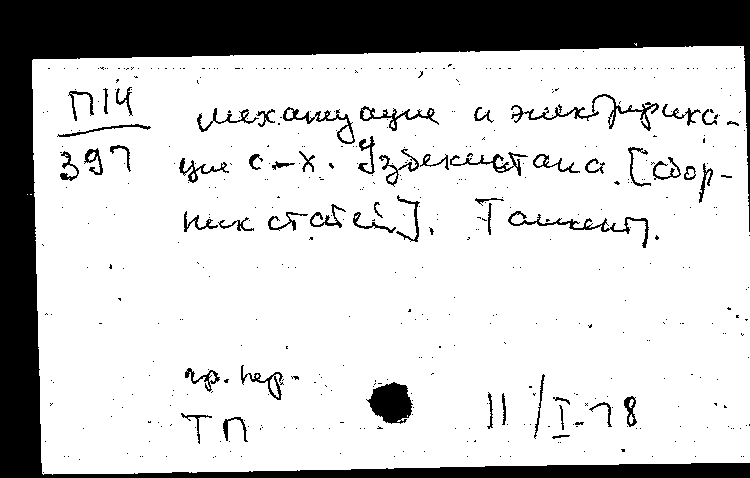 П14
397
механизация и электрифика-
ция с-х. Узбекистана. [сбор-
ник статей]. Ташкент.
гр. пер.
ТП
11/I-78